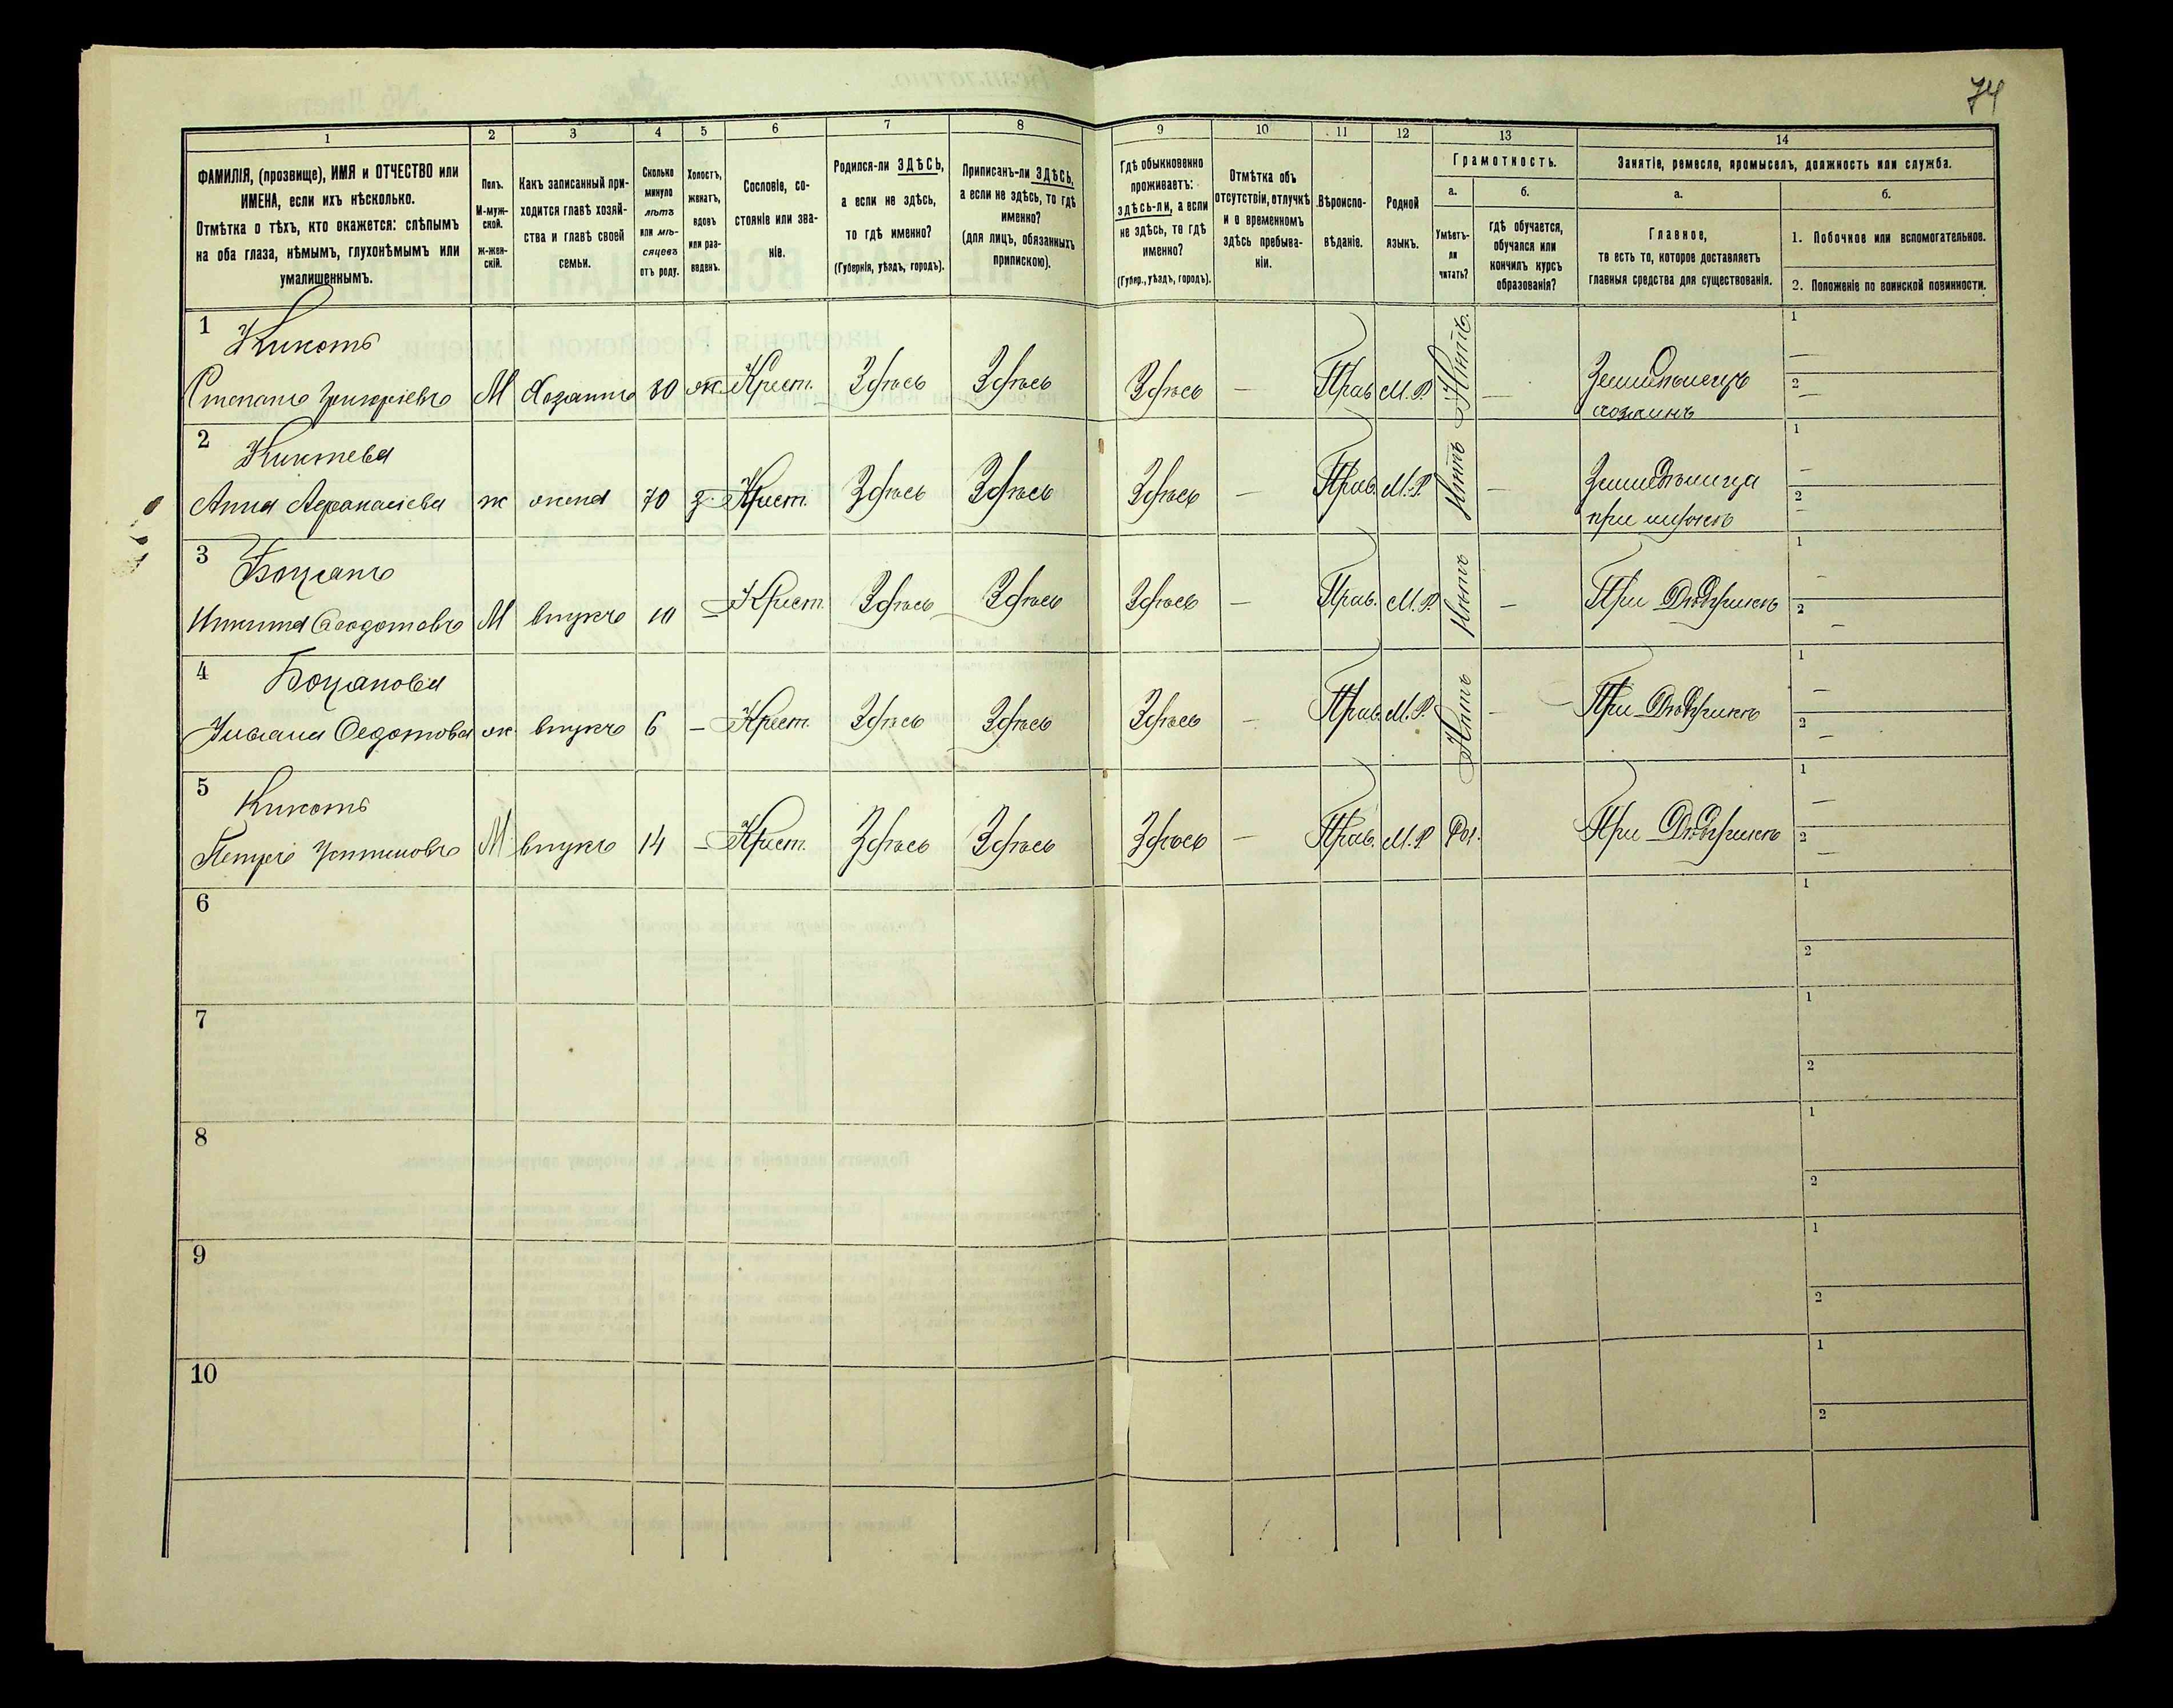 74
1 2 3 4 5 6 7 8 9 10 11 12 13 14
ФАМИЛІЯ, (прозвище), ИМЯ и ОТЧЕСТВО или
ИМЕНА, если ихъ нѣсколько.
Отмѣтка о тѣхъ, кто окажется: слѣпымъ
на оба глаза, нѣмымъ, глухонѣмымъ или
умалишеннымъ.
Полъ.
М-муж-
ской.
Ж-жен-
скій.
Какъ записанный при-
ходится главѣ хозяй-
ства и главѣ своей
семьи.
Сколько
минуло
лѣтъ
или мѣ-
сяцевъ
отъ роду.
Холостъ,
женатъ,
вдовъ
или раз-
веденъ.
Сословіе, со-
стояніе или зва-
ніе.
Родился-ли ЗДѢСЬ,
а если не здѣсь,
то гдѣ именно?
(Губернія, уѣздъ, городъ).
Приписанъ-ли ЗДѢСЬ,
а если не здѣсь, то гдѣ
именно?
(для лицъ, обязанныхъ
припискою).
Гдѣ обыкновенно
проживаетъ:
здѣсь-ли, а если
не здѣсь, то гдѣ
именно?
(Губер., уѣздъ, городъ).
Отмѣтка объ
отсутствіи, отлучкѣ
и о временномъ
здѣсь пребыва-
ніи.
Вѣроиспо-
вѣданіе.
Родной
языкъ.
Грамотность.
а.
Умѣетъ-
ли
читать?
б.
гдѣ обучается,
обучался или
кончилъ курсъ
образованія?
Занятіе, ремесло, промыселъ, должность или служба.
а.
Главное,
то есть то, которое доставляетъ
главныя средства для существованія.
б.
1. Побочное или вспомогательное.
2. Положеніе по воинской повинности.
1 Кикоть
Степанъ Григоріевъ М Хозяинъ 80 ж. Крест. Здѣсь Здѣсь Здѣсь — Прав М.Р. Нѣтъ. — Земледѣлецъ 1 —
хозяинъ 2 —
2 Киктева
Анна Афанасіева ж жена 70 з. Крест. Здѣсь Здѣсь Здѣсь — Прав. М.Р. Нѣтъ — Земледѣлица 1 —
при мужѣ 2 —
3 Боцанъ
Никита Феодотовъ М внукъ 10 — Крест. Здѣсь Здѣсь Здѣсь — Прав. М.Р. Нѣтъ — При Дѣдушкѣ 1 —
2 —
4 Боцанова
Ульяна Федотова ж. внукъ 6 — Крест. Здѣсь Здѣсь Здѣсь — Прав. М.Р. Нѣтъ — При Дѣдушкѣ 1 —
2 —
5 Кикоть
Петръ Устиновъ М внукъ 14 — Крест. Здѣсь Здѣсь Здѣсь — Прав. М.Р. Да. При Дѣдушкѣ 1 —
2 —
6 1
2
7 1
2
8 1
2
9 1
2
10 1
2